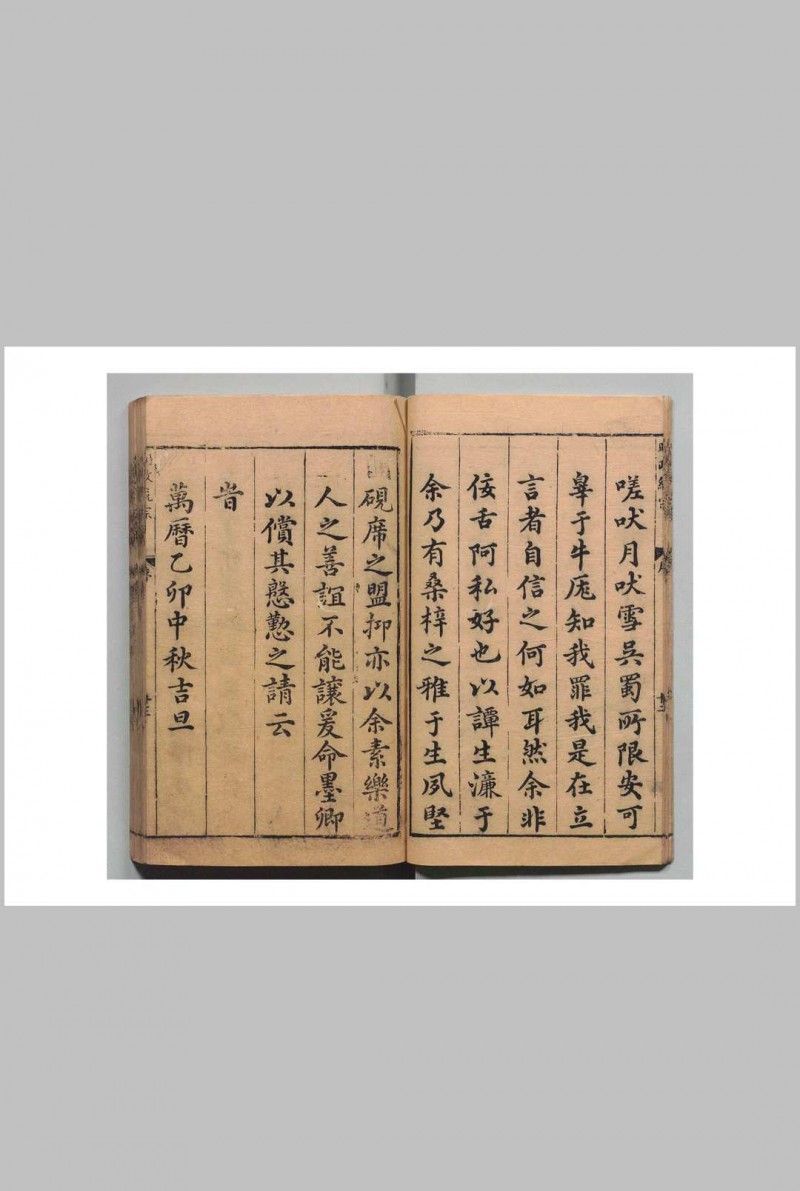 嗟吠月吠雪吳蜀所限安可
辠于牛厖知我罪我是在立
言者自信之何如耳然余非
佞舌阿私好也以譚生濂于
余乃有桑梓之雅于生夙堅
硯席之盟抑亦以余素樂道
人之善誼不能讓爰命墨卿
以償其慇懃之請云
旹
萬曆乙卯中秋吉旦
序